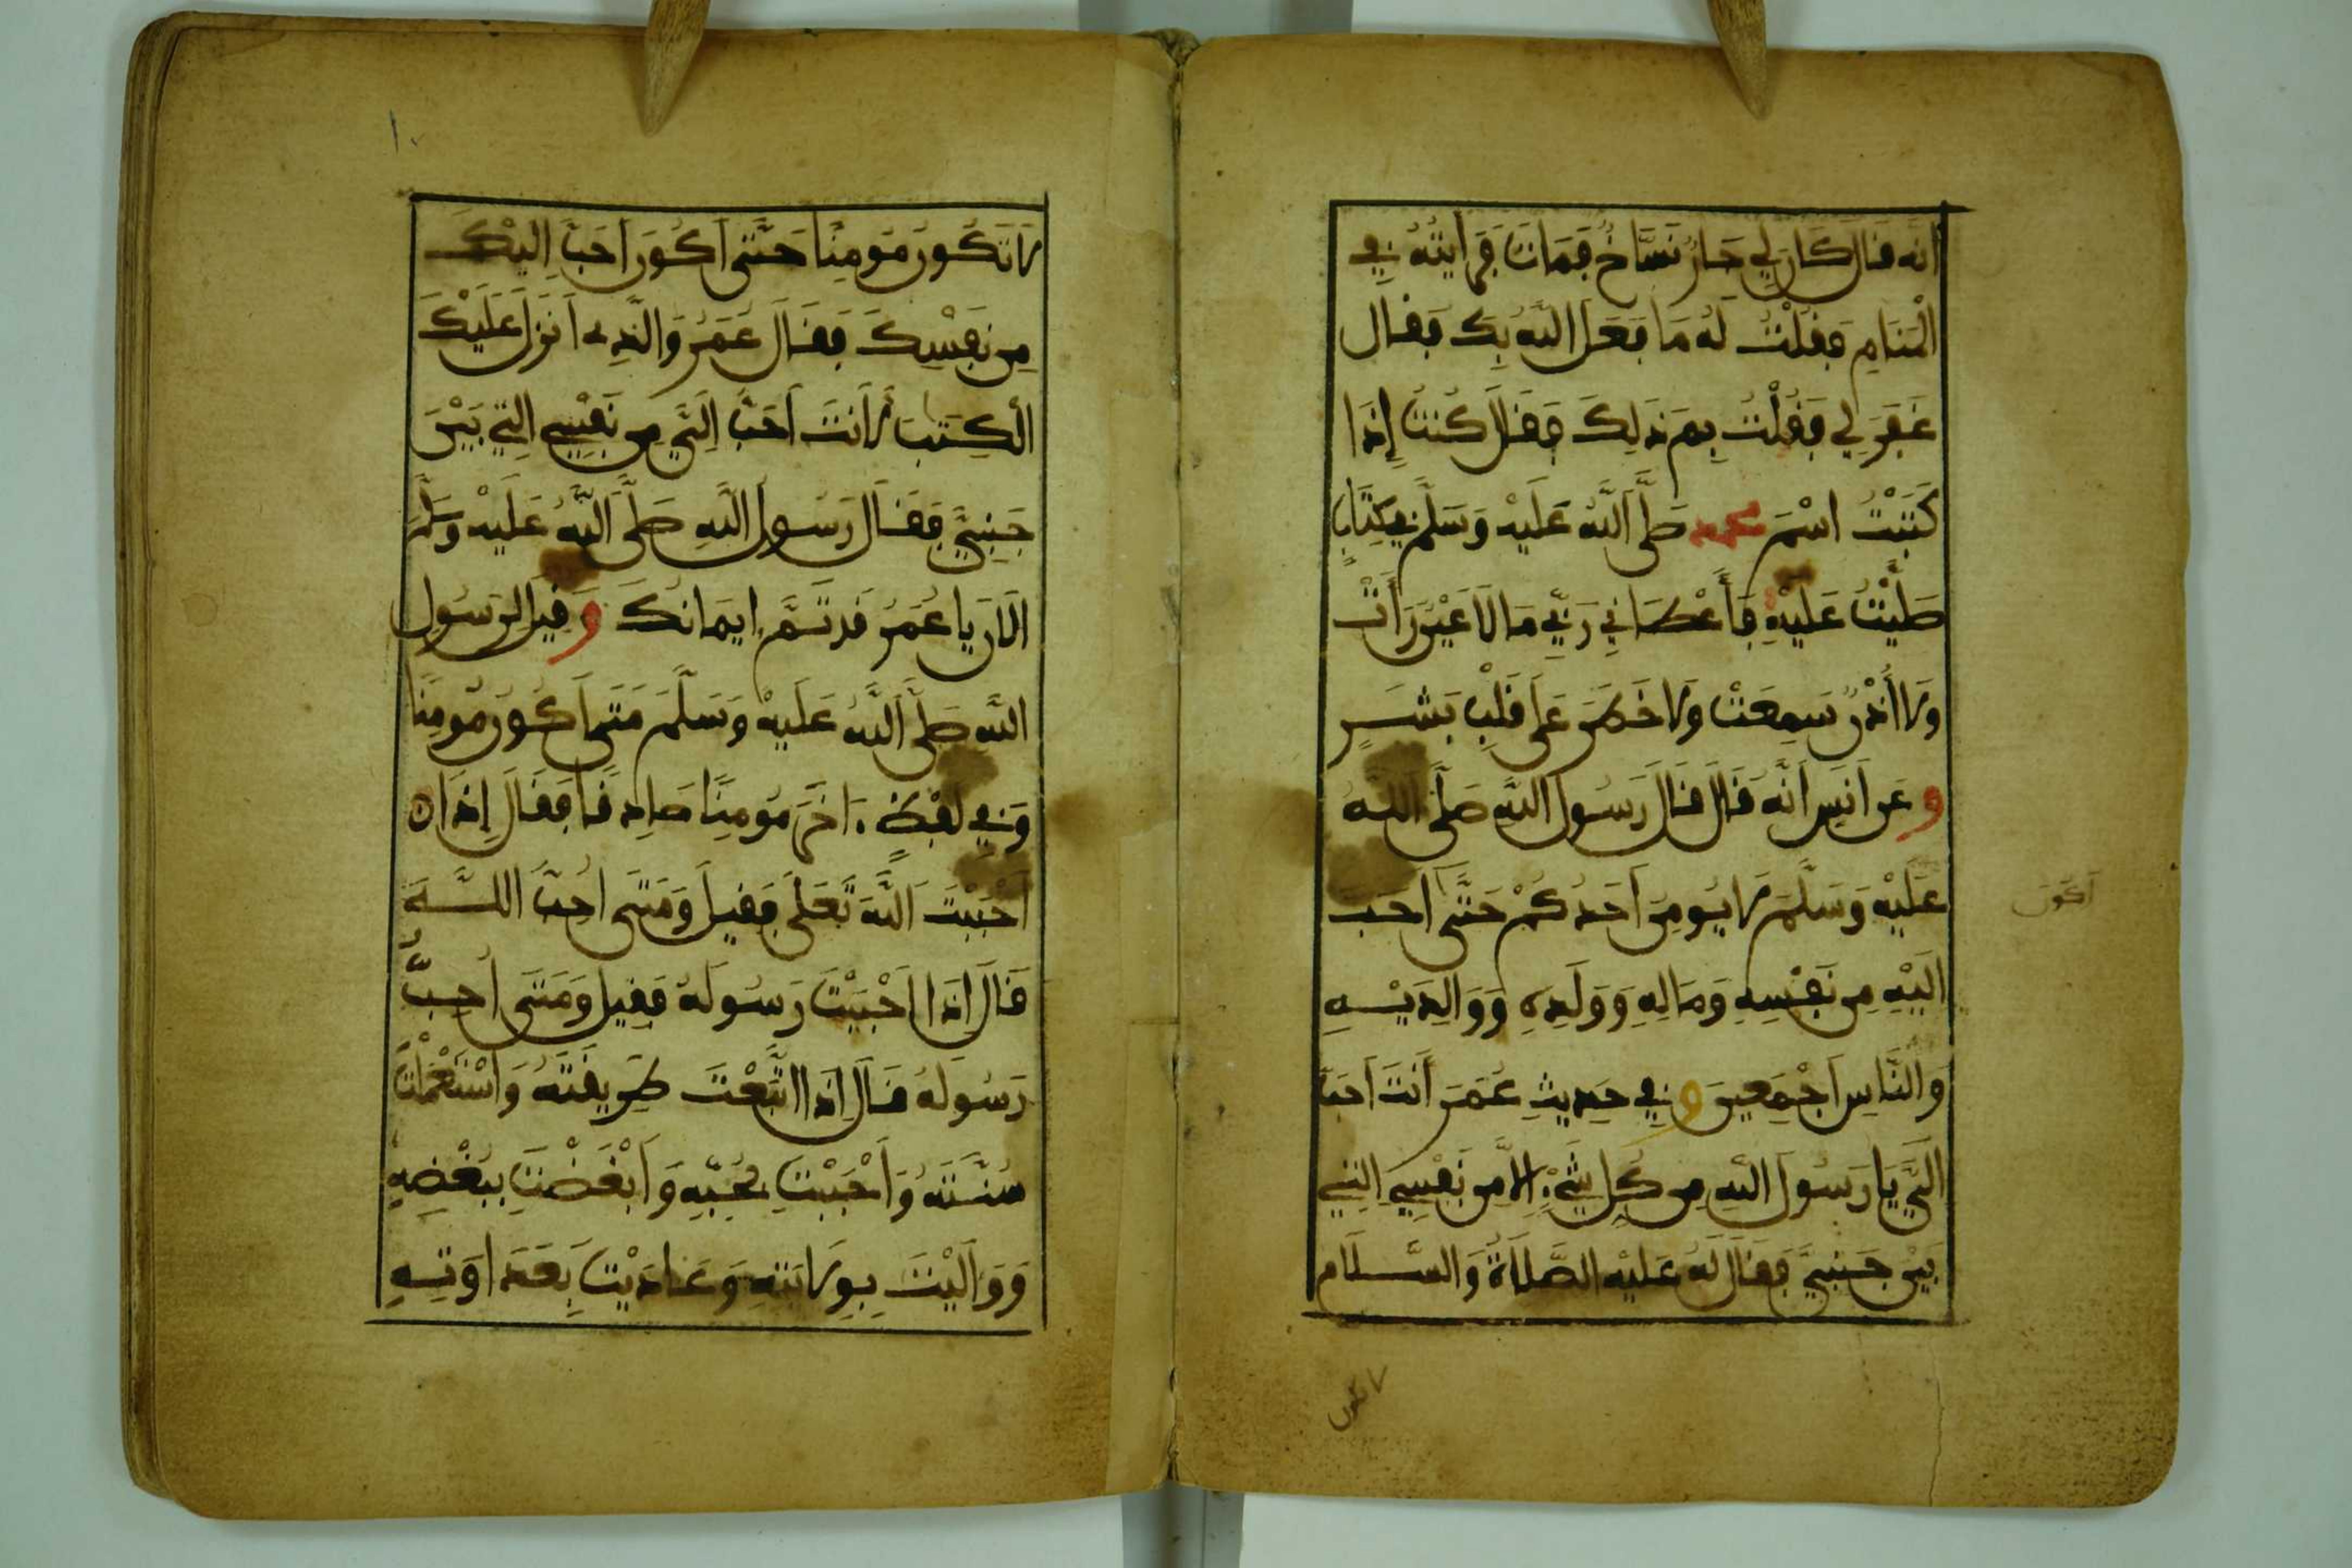 أنه قال كان لي جار نسّاخ فمات فرايته في
الْمَنَامِ فقُلْتُ لَهُ مَا فَعَلَ اللَّهُ بِكَ فقال
غَفَرَ لِي فَقُلْتُ بِمَ ذَلِكَ فَقَالَ كُنتُ إِذَا
كَتَبْتُ اسْمَ محمد صَلَّى اللَّهُ عَلَيْهِ وَسَلَّمَ في كِتَابٍ
صَلَّيْتُ عَلَيْهِ فَأَعْطَانِي رَبِّي مَا لَا عَيْنٌ رَأَتْ
وَلَا أُذْنٌ سَمِعَتْ وَلَا خَطَرَ عَلَى قَلْبِ بَشَرٍ
وعن أَنَسٍ أَنَّهُ قَالَ قَالَ رَسُولُ اللَّهِ صَلَّى اللَّهُ
عَلَيْهِ وَسَلَّمَ لَا يُومِنُ أَحَدُكُمْ حَتَّى أَحَبَّ
إِلَيْهِ مِن نَفْسِهِ وَمَالِهِ وَوَلَدِهِ وَوَالِدَيْهِ
وَالنَّاسِ أَجْمَعِينَ وَفِي حَدِيثِ عُمَرَ أَنتَ أَحَبُّ
إِلَيَّ يَا رَسُولَ اللَّهِ مِن كُلِّ شَيْءٍ إِلَّا مِن نَفْسِي التِي
بَيْنَ جَنبَيَّ فَقَالَ لَهُ عَلَيْهِ الصَّلَاةُ وَالسَّلَام
أكون
لا تكون
لَا تَكُونُ مُومِنًا حَتَّى أَكُونَ أَحَبَّ إِلَيْكَ
مِن نَفْسِكَ فَقَالَ عُمَرُ وَالَّذِي أَنزَلَ عَلَيْكَ
الْكِتَبَ لَأَنتَ أَحَبُّ إِلَيَّ مِن نَفْسِي التِي بَيْنَ
جَنبَيَّ فَقَالَ رَسُولُ اللَّهِ صَلَّى اللَّهُ عَلَيْهِ وَسَلَّمَ
الْآنَ يَا عُمَرُ قَد تَّمَّ إِيمَانُكَ وَقِيلَ لِرَسُولِ
اللَّهِ صَلَّى اللَّهُ عَلَيْهِ وَسَلَّمَ مَتَى أَكُونُ مُومِنًا
وَفِي لَفْظٍ ءَاخَرَ مُومِنًا صَادِقًا فَقَالَ إِذَا
أَحْبَبْتَ اللَّهَ تَعَلَى فَقِيلَ وَمَتَى أُحِبُّ اللَّهَ
قَالَ إِذَا أَحْبَبْتَ رَسُولَهُ فَقِيلَ وَمَتَى أُحِبُّ
رَسُولَهُ قَالَ إِذَا اتَّبَعْتَ طَرِيقَتَهُ وَاسْتَعْمَلْتَ
سُنَّتَهُ وَأَحْبَبْتَ بِحُبِّهِ وَأَبْغَضْتَ بِبُغْضِهِ
وَوَالَيْتَ بِوِلَايَتِهِ وَعَادَيْتَ بِعَدَاوَتِهِ